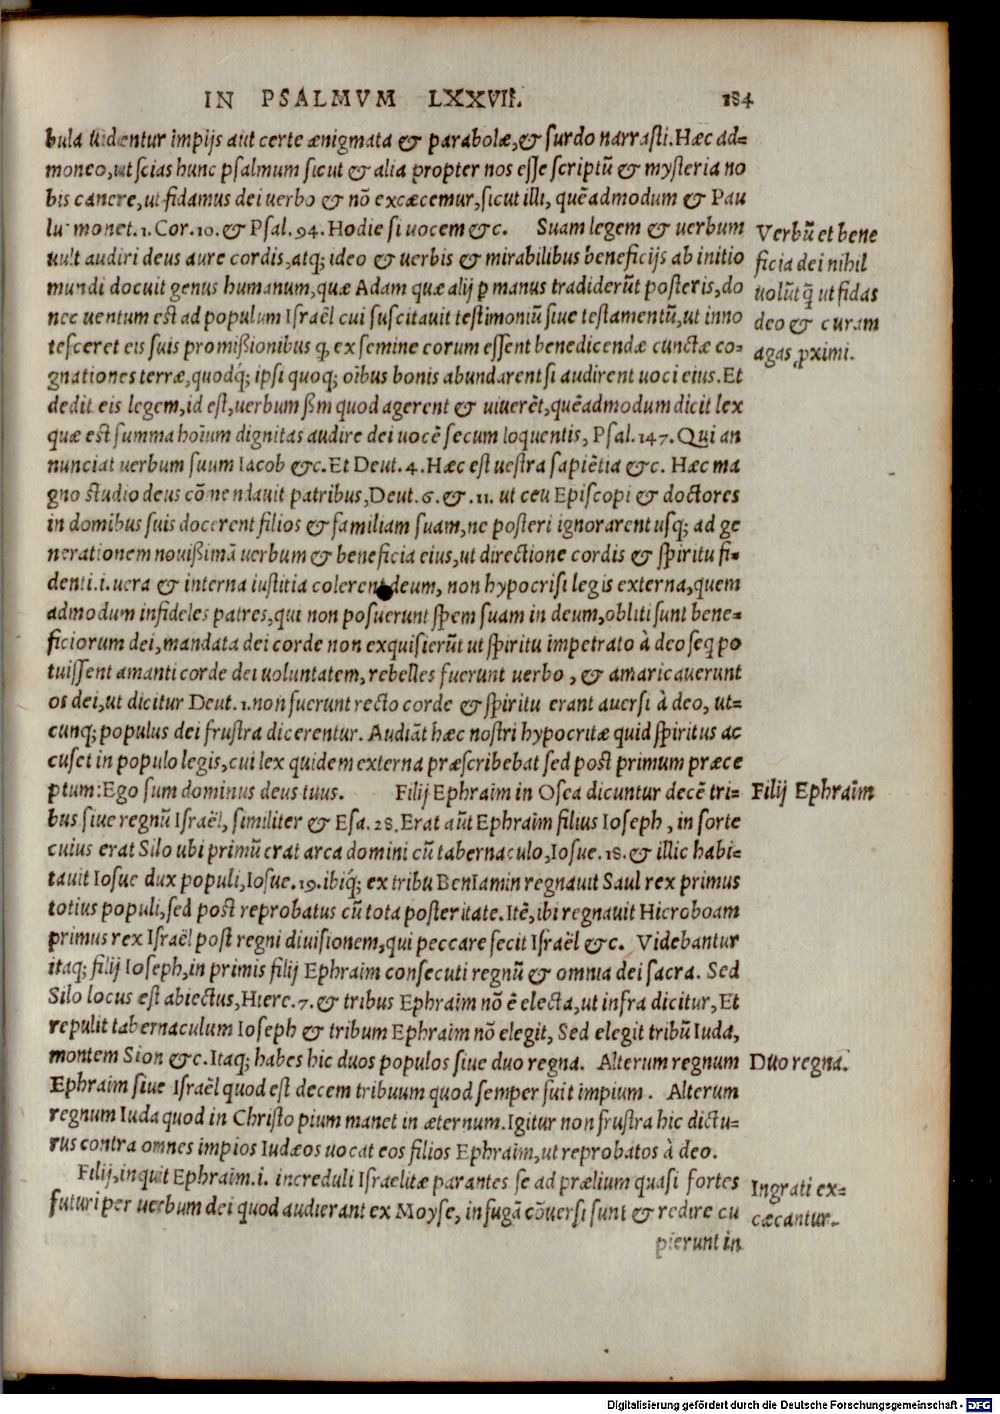 IN PSALMVM LXXVII. 184
bula uidentur impijs aut certe ænigmata & parabolæ, & surdo narrasti. Hæc ad=
moneo, ut scias hunc psalmum sicut & alia propter nos esse scriptū & mysteria no
bis canere, ut fidamus dei uerbo & nō excæcemur, sicut illi, quēadmodum & Pau
lus monet. 1. Cor. 10. & Psal. 94. Hodie si uocem &c. Suam legem & uerbum
uult audiri deus aure cordis, atq; ideo & uerbis & mirabilibus beneficijs ab initio
mundi docuit genus humanum, quæ Adam quæ alij ꝑ manus tradiderūt posteris, do
nec uentum est ad populum Israël cui suscitauit testimoniū siue testamentū, ut inno
tesceret eis suis promißionibus ꝙ ex semine eorum essent benedicendæ cunctæ co=
gnationes terræ, quodq́; ipsi quoq; oībus bonis abundarent si audirent uoci eius. Et
dedit eis legem, id est, uerbum ßm quod agerent & uiuerēt, quēadmodum dicit lex
quæ est summa hoīum dignitas audire dei uocē secum loquentis, Psal. 147. Qui an
nunciat uerbum suum Iacob &c. Et Deut. 4. Hæc est uestra sapiētia &c. Hæc ma
gno studio deus cōmendauit patribus, Deut. 6. &. 11. ut ceu Episcopi & doctores
in domibus suis docerent filios & familiam suam, ne posteri ignorarent usq; ad ge
nerationem nouißimā uerbum & beneficia eius, ut directione cordis & spiritu fi=
denti.i. uera & interna iustitia colerent deum, non hypocrisi legis externa, quem
admodum infideles patres, qui non posuerunt spem suam in deum, obliti sunt bene=
ficiorum dei, mandata dei corde non exquisierūt ut spiritu impetrato à deo seq po
tuissent amanti corde dei uoluntatem, rebelles fuerunt uerbo, & amaricauerunt
os dei, ut dicitur Deut. 1. non fuerunt recto corde & spiritu erant auersi à deo, ut=
cunq; populus dei frustra dicerentur. Audiāt hæc nostri hypocritæ quid spiritus ac
cuset in populo legis, cui lex quidem externa præscribebat sed post primum præce
ptum: Ego sum dominus deus tuus. Filij Ephraim in Osea dicuntur decē tri=
bus siue regnū Israël, similiter & Esa. 28. Erat aūt Ephraim filius Ioseph, in sorte
cuius erat Silo ubi primū erat arca domini cū tabernaculo, Iosue. 18. & illic habi=
tauit Iosue dux populi, Iosue. 19. ibiq́; ex tribu BenIamin regnauit Saul rex primus
totius populi, sed post reprobatus cū tota posteritate. Itē, ibi regnauit Hieroboam
primus rex Israël post regni diuisionem, qui peccare fecit Israël &c. Videbantur
itaq; filij Ioseph, in primis filij Ephraim consecuti regnū & omnia dei sacra. Sed
Silo locus est abiectus, Hiere. 7. & tribus Ephraim nō ē electa, ut infra dicitur, Et
repulit tabernaculum Ioseph & tribum Ephraim nō elegit, Sed elegit tribū Iuda,
montem Sion &c. Itaq; habes hic duos populos siue duo regna. Alterum regnum
Ephraim siue Israël quod est decem tribuum quod semper fuit impium. Alterum
regnum Iuda quod in Christo pium manet in æternum. Igitur non frustra hic dictu=
rus contra omnes impios Iudæos uocat eos filios Ephraim, ut reprobatos à deo.
Filij, inquit Ephraim.i. increduli Israelitæ parantes se ad prælium quasi fortes
futuri per uerbum dei quod audierant ex Moyse, in fugā cōuersi sunt & redire cu
pierunt in
Verbū et bene
ficia dei nihil
uolūt q̄ ut fidas
deo & curam
agas ꝓximi.
Filij Ephraim
Duo regna.
Ingrati ex=
cæcantur.
Digitalisierung gefördert durch die Deutsche Forschungsgemeinschaft - DFG